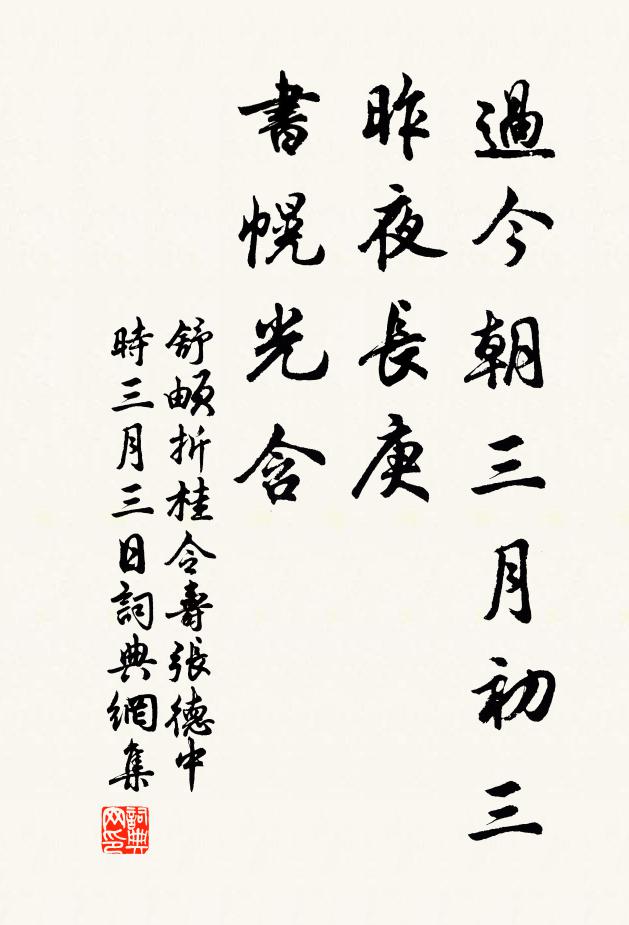 過今朝三月初三
昨夜長庚
書幌光含
舒頔折桂令壽張德中
時三月三日詞典網集
詞典
网印